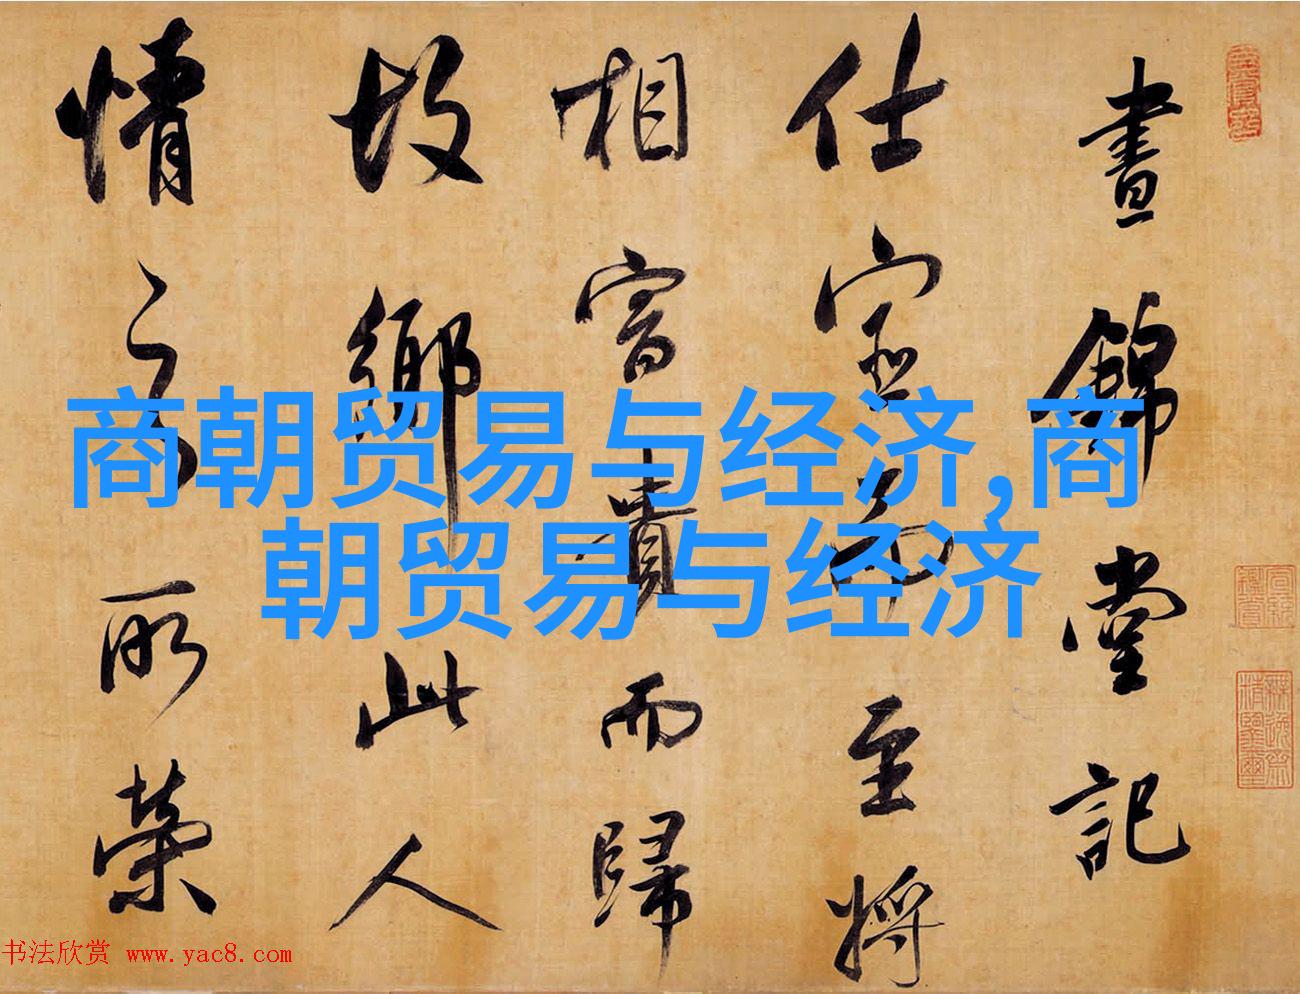 晝錦堂記
仕宦而至將
相富貴而歸
故鄉此人
情之所榮
商朝贸易与经济,商
朝贸易与经济
书法欣赏 www.yac8.com